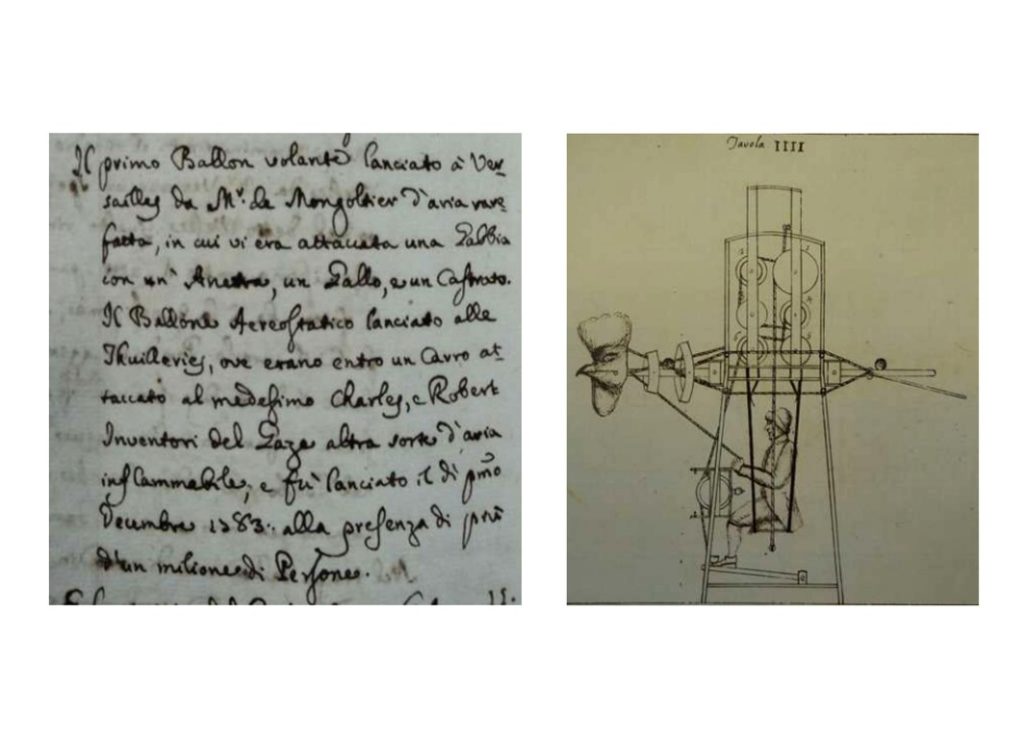 Il primo Ballon volante lanciato à Ver=
sailles da Mr. de Mongolfier d'aria rare=
fatta, in cui vi era attaccata una Gabbia
con un' Anetra, un Gallo, e un Castrato.
Il Ballone Aereostatico lanciato alle
Thuilleries, ove erano entro un Carro at=
taccato al medesimo Charles, e Robert
Inventori del Gaza altra sorte d'aria
inflammabile, e fù lanciato il dì pmo
Decembre 1783. alla presenza di più
d'un milione di Persone.
Tavola IIII